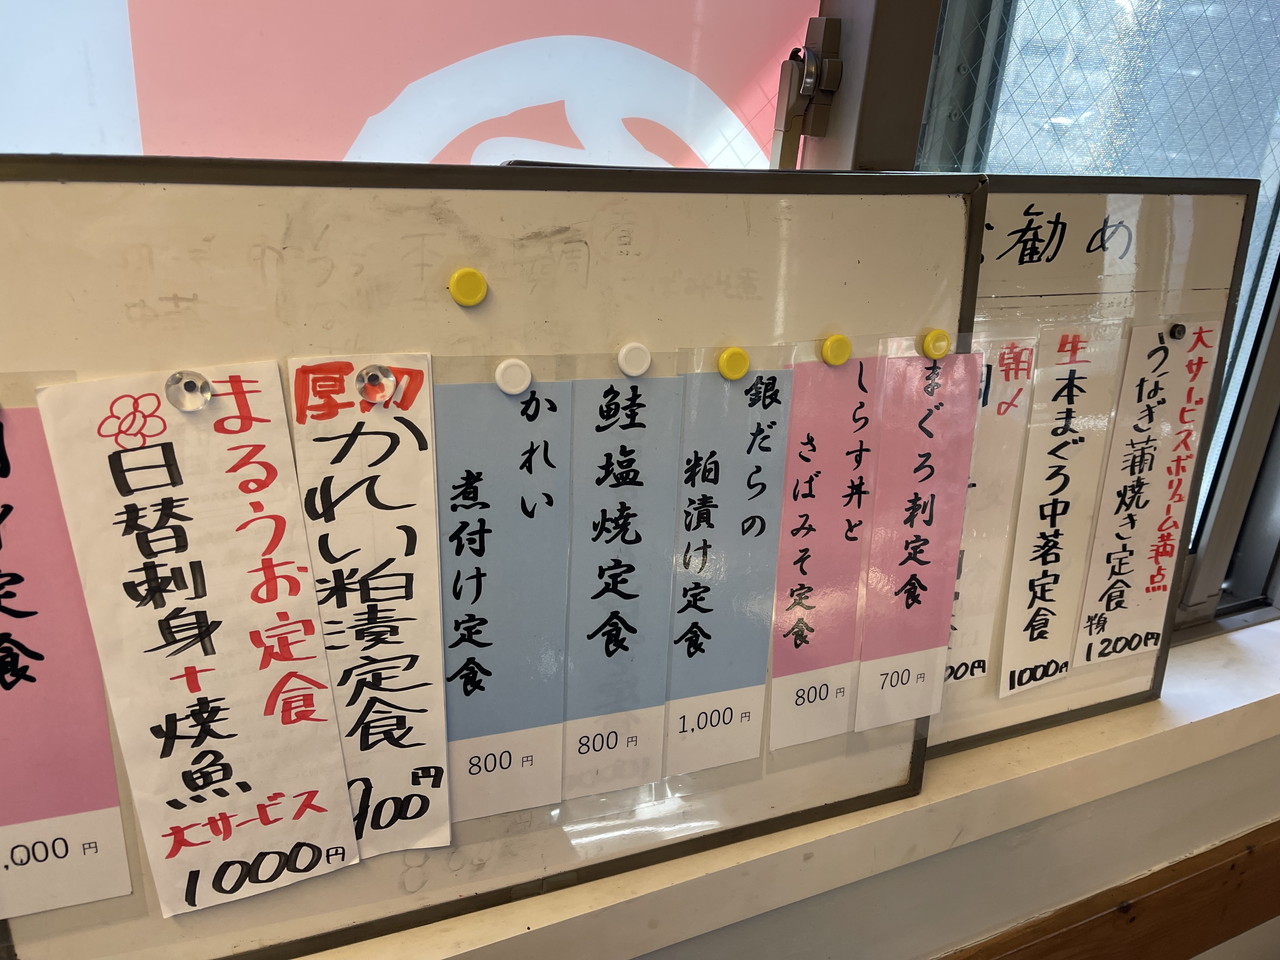 お勧め
大サービスボリューム満点
うなぎ蒲焼き定食
1200円
生本まぐろ中落定食
1000円
朝〆
00円
まぐろ刺定食
700円
しらす丼と
さばみそ定食
800円
銀だらの
粕漬け定食
1,000円
鮭塩焼定食
800円
かれい
煮付け定食
800円
厚切
かれい粕漬定食
900円
まるうお定食
日替刺身+焼魚
大サービス
1000円
定食
,000円